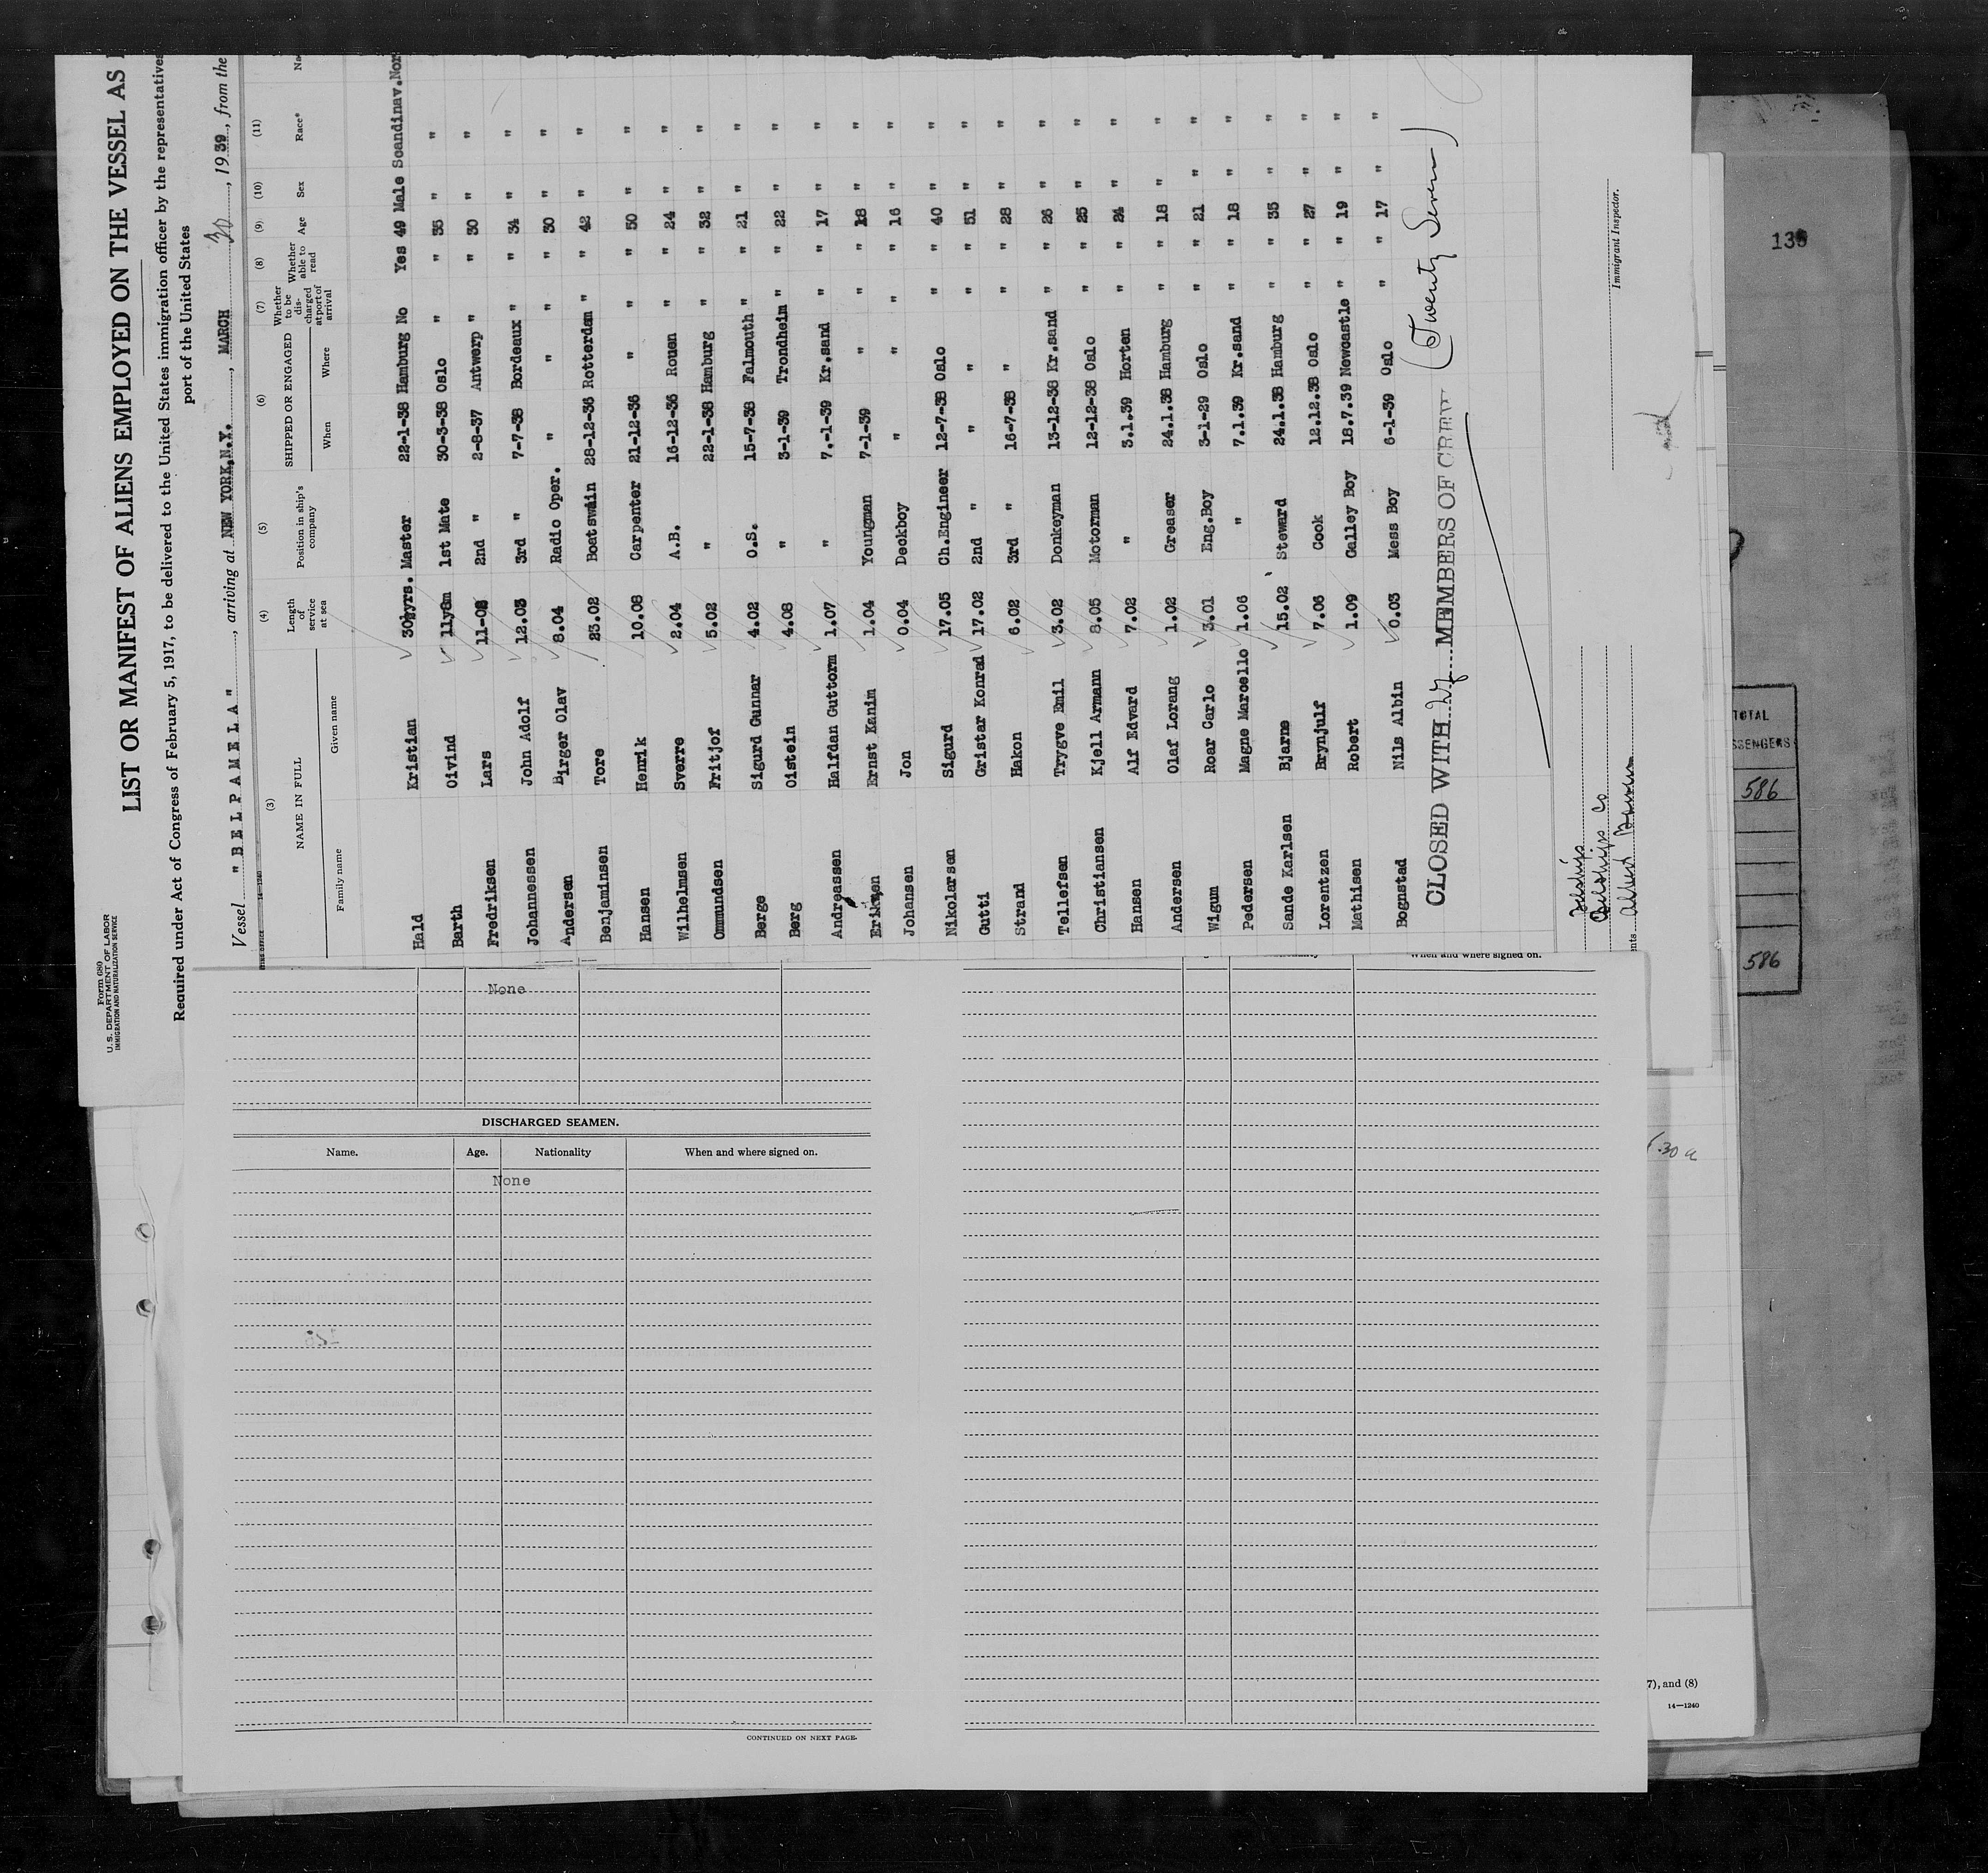 Form 680
U. S. DEPARTMENT OF LABOR
IMMIGRATION AND NATURALIZATION SERVICE
LIST OR MANIFEST OF ALIENS EMPLOYED ON THE VESSEL AS
Required under Act of Congress of February 5, 1917, to be delivered to the United States immigration officer by the representatives
port of the United States
Vessel "BELPAMELA", arriving at NEW YORK,N.Y., MARCH 30, 1939, from the
14-1240
(3) (4) (5) (6) (7) (8) (9) (10) (11)
NAME IN FULL Length of service at sea Position in ship's company SHIPPED OR ENGAGED Whether to be discharged at port of arrival Whether able to read Age Sex Race* Na
Family name Given name When Where
Hald Kristian 30yrs. Master 22-1-38 Hamburg No Yes 49 Male Scandinav.Nor
Barth Oivind 11y8m 1st Mate 30-3-38 Oslo " " 35 " "
Fredriksen Lars 11-02 2nd " 2-8-37 Antwerp " " 30 " "
Johannessen John Adolf 12.03 3rd " 7-7-38 Bordeaux " " 34 " "
Andersen Birger Olav 8.04 Radio Oper. " " " " 30 " "
Benjaminsen Tore 23.02 Boatswain 28-12-36 Rotterdam " " 42 " "
Hansen Henrik 10.08 Carpenter 21-12-36 " " " 50 " "
Wilhelmsen Sverre 2.04 A.B. 16-12-36 Rouen " " 24 " "
Ommundsen Fritjof 5.02 " 22-1-38 Hamburg " " 32 " "
Berge Sigurd Gunnar 4.02 O.S. 15-7-38 Falmouth " " 21 " "
Berg Oistein 4.08 " 3-1-39 Trondheim " " 22 " "
Andreassen Halfdan Guttorm 1.07 " 7.-1-39 Kr.sand " " 17 " "
Eriksen Ernst Kanim 1.04 Youngman 7-1-39 " " " 18 " "
Johansen Jon 0.04 Deckboy " " " " 16 " "
Nikolarsen Sigurd 17.05 Ch.Engineer 12-7-38 Oslo " " 40 " "
Gutti Gristar Konrad 17.02 2nd " " " " " 51 " "
Strand Hakon 6.02 3rd " 16-7-38 " " " 28 " "
Tellefsen Trygve Emil 3.02 Donkeyman 13-12-38 Kr.sand " " 26 " "
Christiansen Kjell Armann 8.05 Motorman 12-12-38 Oslo " " 25 " "
Hansen Alf Edvard 7.02 " 3.1.39 Horten " " 24 " "
Andersen Olaf Lorang 1.02 Greaser 24.1.38 Hamburg " " 18 " "
Wigum Roar Carlo 3.01 Eng.Boy 3-1-29 Oslo " " 21 " "
Pedersen Magne Marcello 1.06 " 7.1.39 Kr.sand " " 18 " "
Sande Karlsen Bjarne 15.02 Steward 24.1.38 Hamburg " " 35 " "
Lorentzen Brynjulf 7.06 Cook 12.12.38 Oslo " " 27 " "
Mathisen Robert 1.09 Galley Boy 18.7.39 Newcastle " " 19 " "
Bognstad Nils Albin 0.03 Mess Boy 6-1-39 Oslo " " 17 " "
CLOSED WITH 27 MEMBERS OF CREW (Twenty Seven)
Immigrant Inspector.
nts
139
TOTAL
SSENGERS
586
586
When and where signed on.
None
DISCHARGED SEAMEN.
Name. Age. Nationality When and where signed on.
None
CONTINUED ON NEXT PAGE.
7), and (8)
14—1240